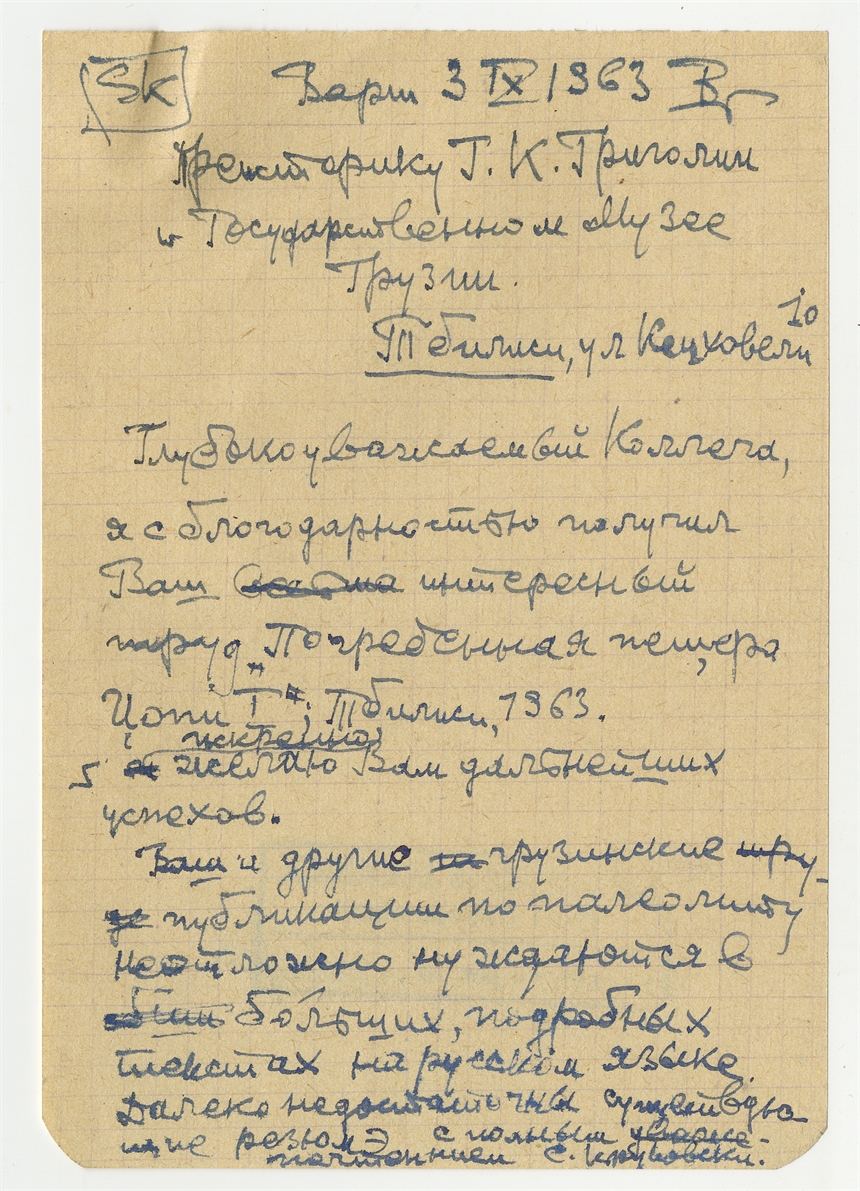 Sk Варш 3 IX 1963
Г. К. Григолии
в Государственном Музее
Грузии.
10
Тбилиси, ул Кецховели
Глубокоуважаемый Коллега,
я с благодарностью получил
Ваш интересный
труд „Погребенная пещера
Цопи I“, Тбилиси, 1963.
искренно
желаю Вам дальнейших
успехов.
Ваш и другие грузинские тру-
публикации по палеолиту
неотложно нуждаются в
больших, подробных
текстах на русском языке.
Далеко недостаточны существую-
щие резюмэ с полным
почтением С. Круковски.